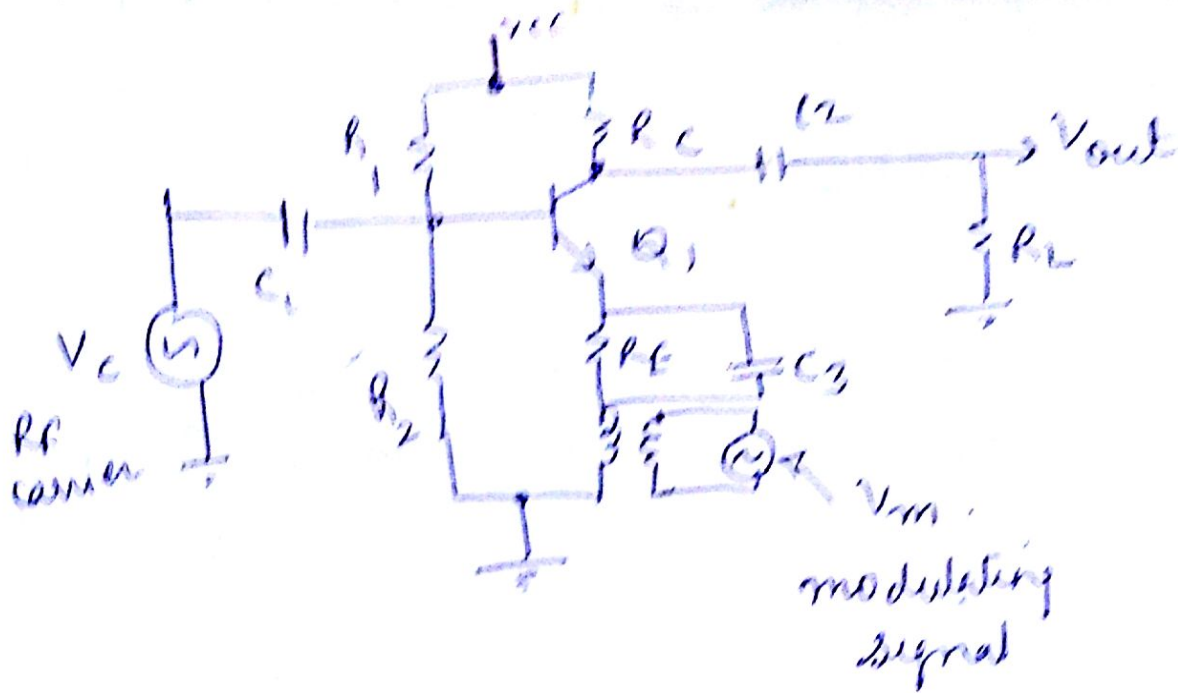 R1
RC
C2
Vout
C1
Q1
RL
Vc
RE
C3
R2
RF
carrier
Vm
modulating
signal